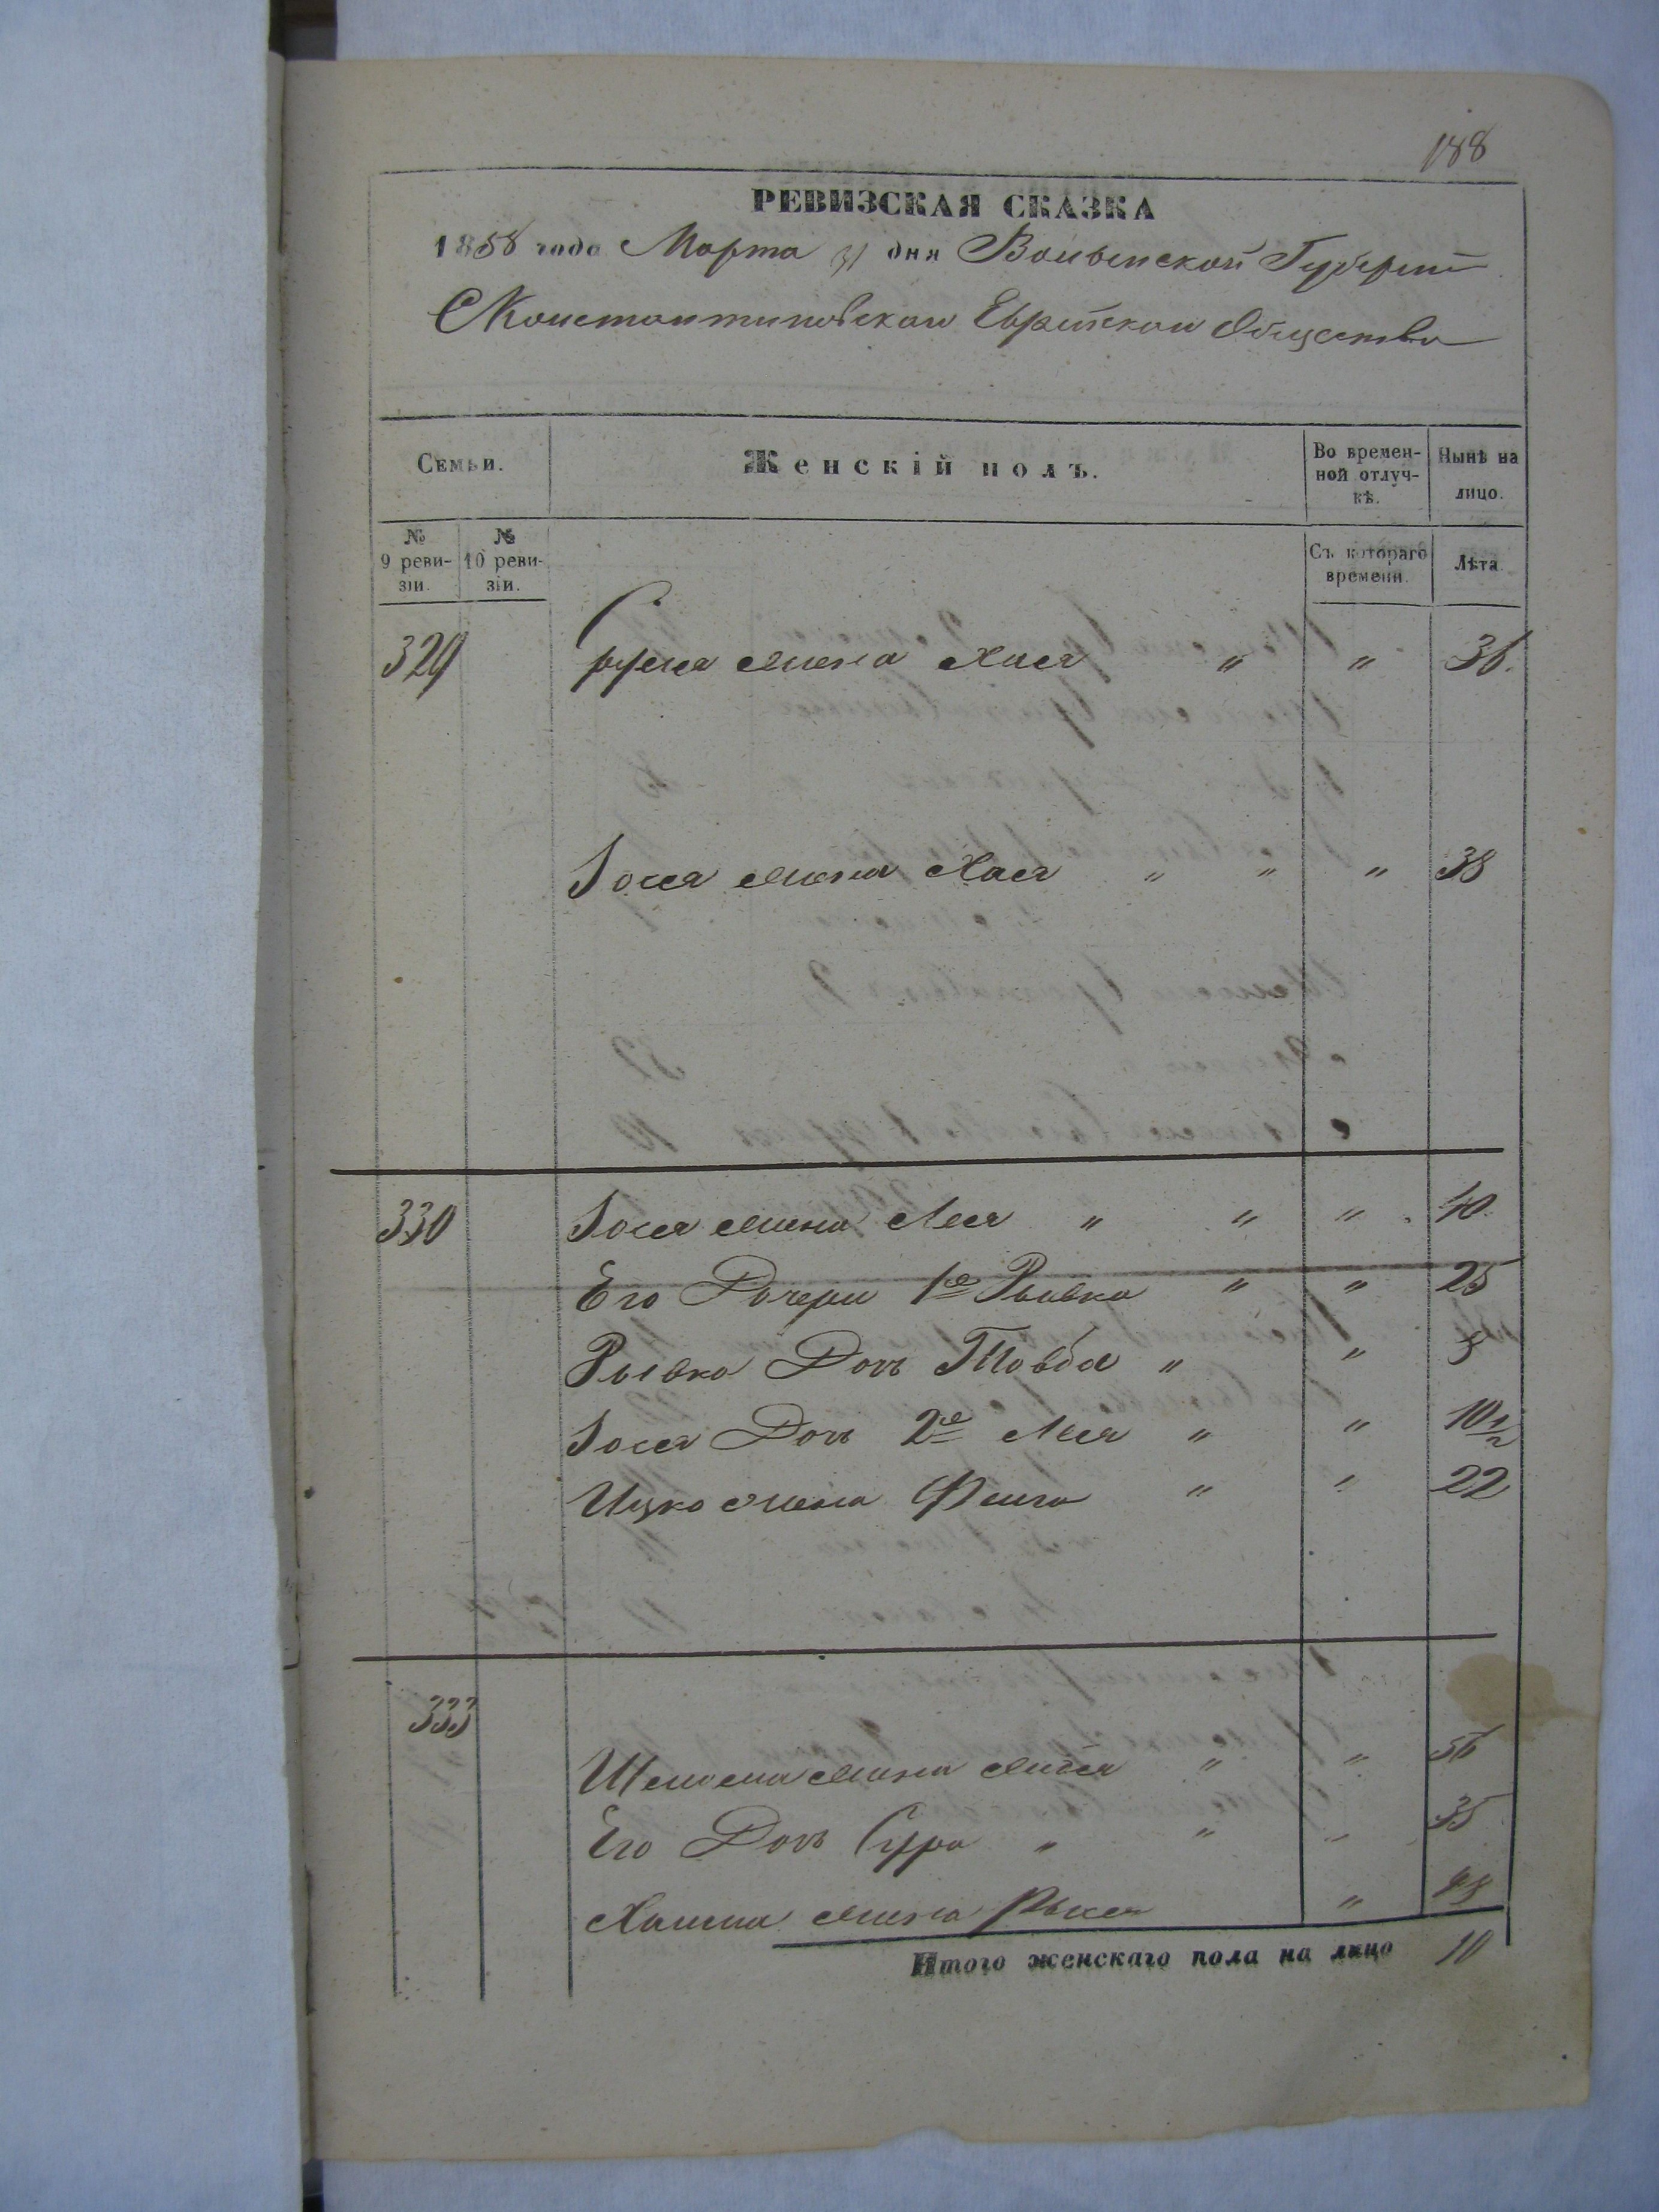 188
РЕВИЗСКАЯ СКАЗКА
1858 года Марта 31 дня Волынской Губернiи
СКонстантиновскаго Еврейскаго Общества
Семьи. Женскій полъ. Во временной отлучкѣ. Нынѣ на лицо.
№ 9 ревизіи. № 10 ревизіи. Съ котораго времени. Лѣта.
329 жена Хася " " 36.
Іося жена Хася " " " 38
330 Іося жена Лея " " " 40.
Его Дочери 1е Рывка " " 25
Рывка Дочь Товба " " 5
Іося Дочь 2е Лея " " 10 1/2
Ицко жена Фейга " " 22
333
Шелома жена " " 56
Его Дочь Сура " " " 35
жена "
Итого женскаго пола на лицо 10